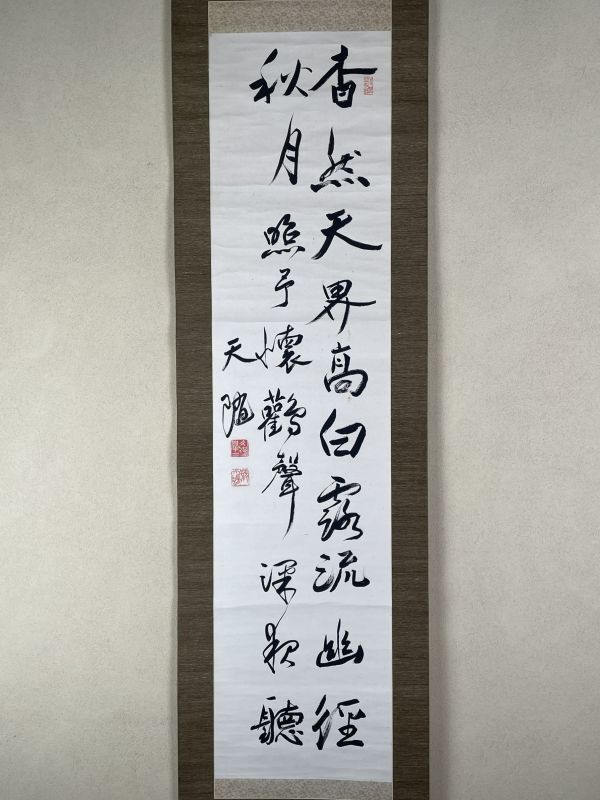 杳然天界高白露流幽徑
秋月照予懷鸛聲深夜聽
天随